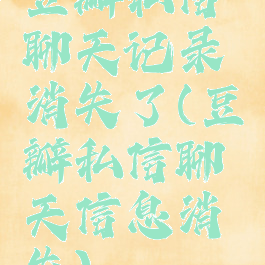 豆瓣私信
聊天记录
消失了(豆
瓣私信聊
天信息消
失)